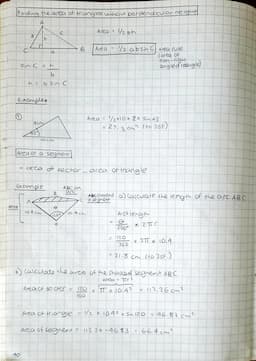 Finding the area of triangles without perpendicular height
A
Area = 1/2 bh
C
B
Area = 1/2 absinC
area rule
(area of
non-right
angled triangle)
sin C = h/b
h = b sin C
Examples
①
Area = 1/2 × 10 × 8 × sin 43
(to 3sf)
Area of a segment
= area of sector - area of triangle
Example
a) calculate the length of the arc ABC
10.4 cm
10.4 cm
Arc length
= θ/360 × 2πr
= 120/360 × 2π × 10.4
= 21.8 cm (to 3sf)
b) calculate the area of the shaded segment ABC
Area of sector = 120/360 × π × 10.4² = 113.26 cm²
Area of triangle = 1/2 × 10.4² × sin 120 = 46.83 cm²
Area of segment = 113.26 - 46.83 = 66.4 cm²